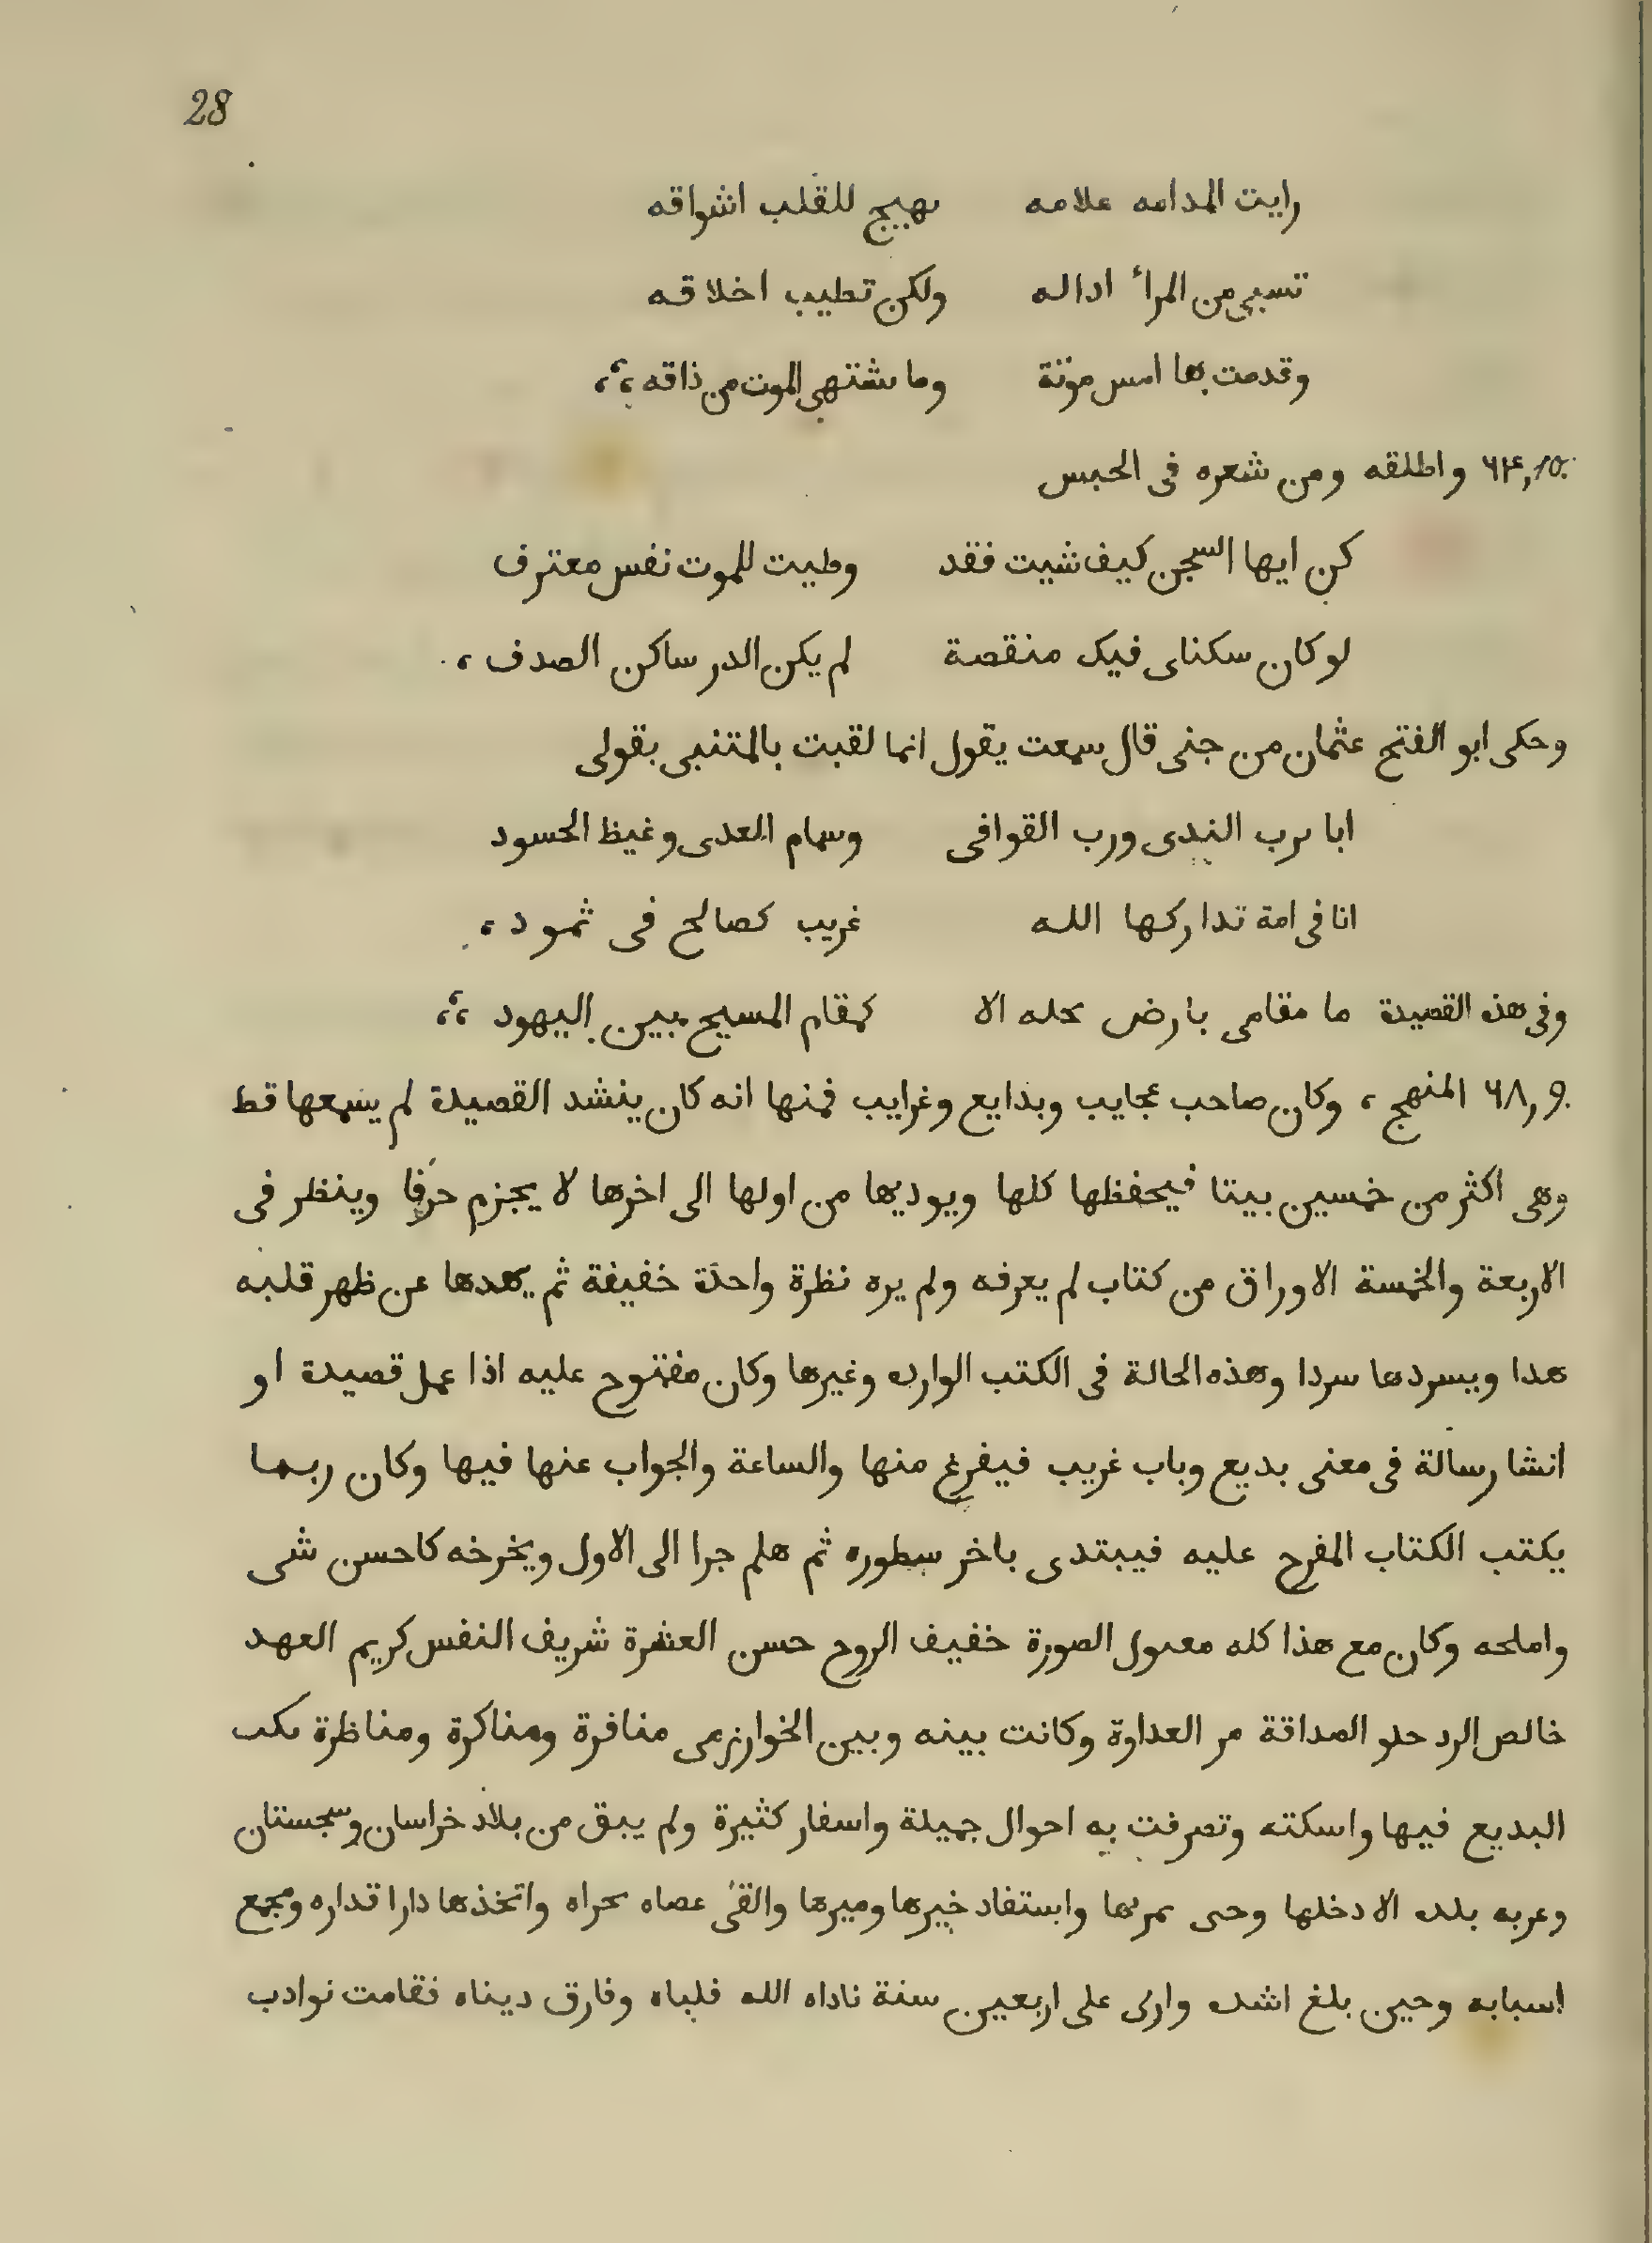 28
رايت المدامه علامه    تهيج للقلب اشواقه
تسيى من المرأ اداله    ولكن تطيب اخلاقه
وقدمت بها امس موتة    وما يشتهى الموت من ذاقه ؛،
٦٤,١٥. واطلقه ومن شعره فى الحبس
كن ايها السجن كيف شيت فقد    وطيت للموت نفس معترف
لو كان سكناى فيك منقصة    لم يكن الدر ساكن الصدف ،
وحكى ابو الفتح عثمان من جنى قال سمعت يقول انما لقبت بالمتنبى بقولى
ابا ىرب الندى ورب القوافى    وسمام العدى وغيظ الحسود
انا فى امة تداركها الله    غريب كصالح فى ثمود ،
وفى هذه القصيدة ما مقامى بارض نحله الا    كمقام المسيح بين اليهود ؛،
٦٨,٩. المنهج ، وكان صاحب عجايب وبدايع وغرايب فمنها انه كان ينشد القصيدة لم يسمعها قط
وهى اكثر من خمسين بيتا فيحفظها كلها ويوديها من اولها الى اخرها لا يجزم حرفا وينظر فى
الاربعة والخمسة الاوراق من كتاب لم يعرفه ولم يره نظرة واحدة خفيفة ثم يهدها عن ظهر قلبه
هدا ويسردها سردا وهذه الحالة فى الكتب الوارده وغيرها وكان مفتوح عليه اذا عمل قصيدة او
انشا رسالة فى معنى بديع وباب غريب فيفرغ منها والساعة والجواب عنها فيها وكان ربما
يكتب الكتاب المفرح عليه فيبتدى باخر سطوره ثم هلم جرا الى الاول ويخرخه كاحسن شى
واملحه وكان مع هذا كله معىول الصورة خفيف الروح حسن العشرة شريف النفس كريم العهد
خالص الرد حلو الصداقة مر العداوة وكانت بينه وبين الخوارزمى منافرة ومناكرة ومناظرة ىكب
البديع فيها واسكته وتصرفت به احوال جميلة واسفار كثيرة ولم يبق من بلاد خراسان وسجستان
وعربه بلده الا دخلها وحى ىمرىها وابستفاد خيرها وميرها والقى عصاه ىحراه واتخذها دارا قداره ومجمع
اسبابه وحين بلغ اشده واربى على اربعين سنة ناداه الله فلباه وفارق ديناه فقامت نوادب